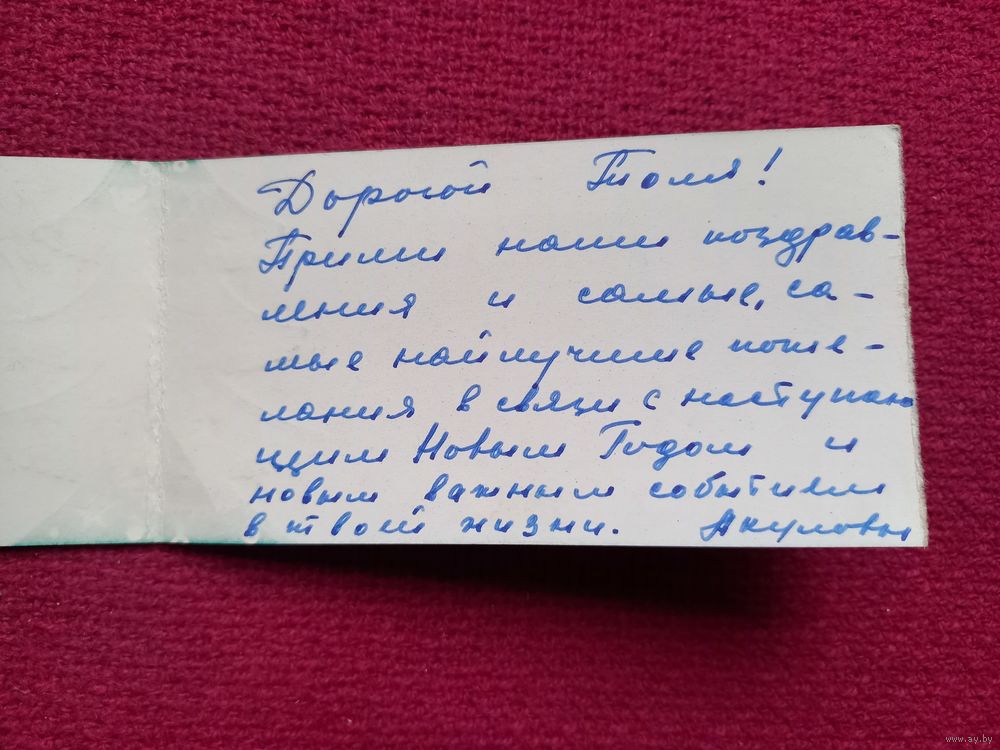 Дорогой Толя!
Прими наши поздрав-
ления и самые, са-
мые найлучшие поже-
лания в связи с наступаю
щим Новым Годом и
новым важным событием
в твоей жизни. Акуловы
www.ay.by